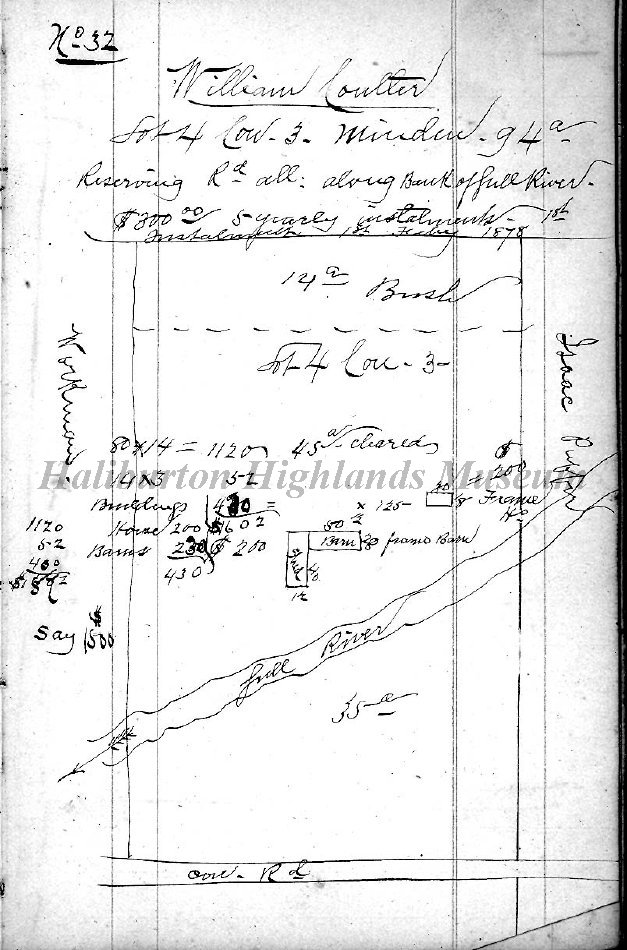 No 32
William Coulter
Lot 4 Con. 3. Minden. 94 a
Reserving Rd all: along Bank of Gull River.
$300 00 5 yearly instalments - 1st
Instalment 1st Feby 1878
14 a Bush
Lot 4 Con. 3
Workman
Isaac
80 x 14 = 1120 45 a cleared
14 x 3 52
$ 200
Haliburton Highlands Museum
Buildings 430 =
x 125-
20
18 Frame Ho
House 200 $1602
Barns 230 $ 200
430
50
Barn 20 frame Barn
Shed 40
12
1120
52
430
$1602
Say $1500
Gull River
35 a
Con. Rd